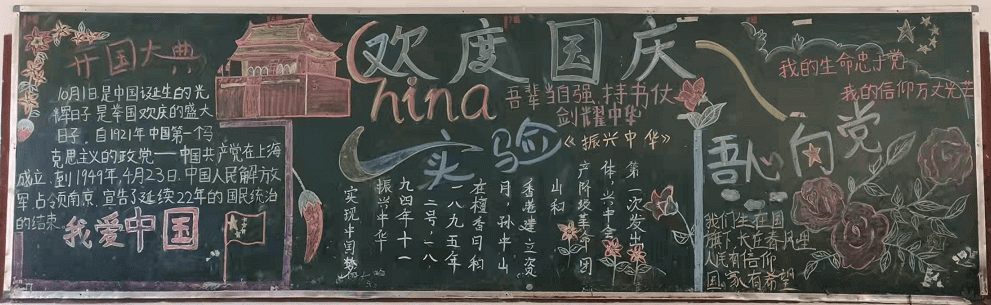 开国大典
10月1日是中国诞生的光
辉日子是举国欢庆的盛大
日子，自1921年中国第一个马
克思主义的政党——中国共产党在上海
成立，到1949年，4月23日，中国人民解放
军占领南京，宣告了延续22年的国民统治
的结束
我爱中国
欢度国庆
China
吾辈当自强，持书仗
剑耀中华
实验
《振兴中华》
第一次发出
体，兴中会
产阶级革命团
山和
香港建立资
月，孙中山
在檀香日和
一八九五年
二号，一八
九四年十一
振兴中华
实现中国梦
我的生命忠于党
我的信仰万丈光芒
吾心向党
我们生在国
旗下，长在春风里
人民有信仰
国家有希望